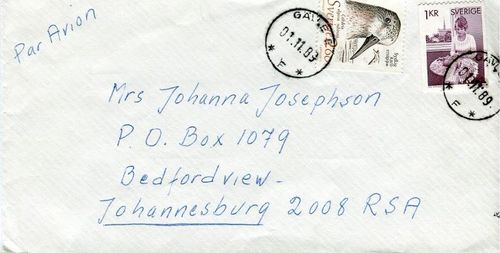 Par Avion
GÄVLE
01.11.89
* F *
1 KR SVERIGE
GÄVLE
01.11.89
* F *
Mrs Johanna Josephson
P.O. Box 1079
Bedfordview-
Johannesburg 2008 RSA